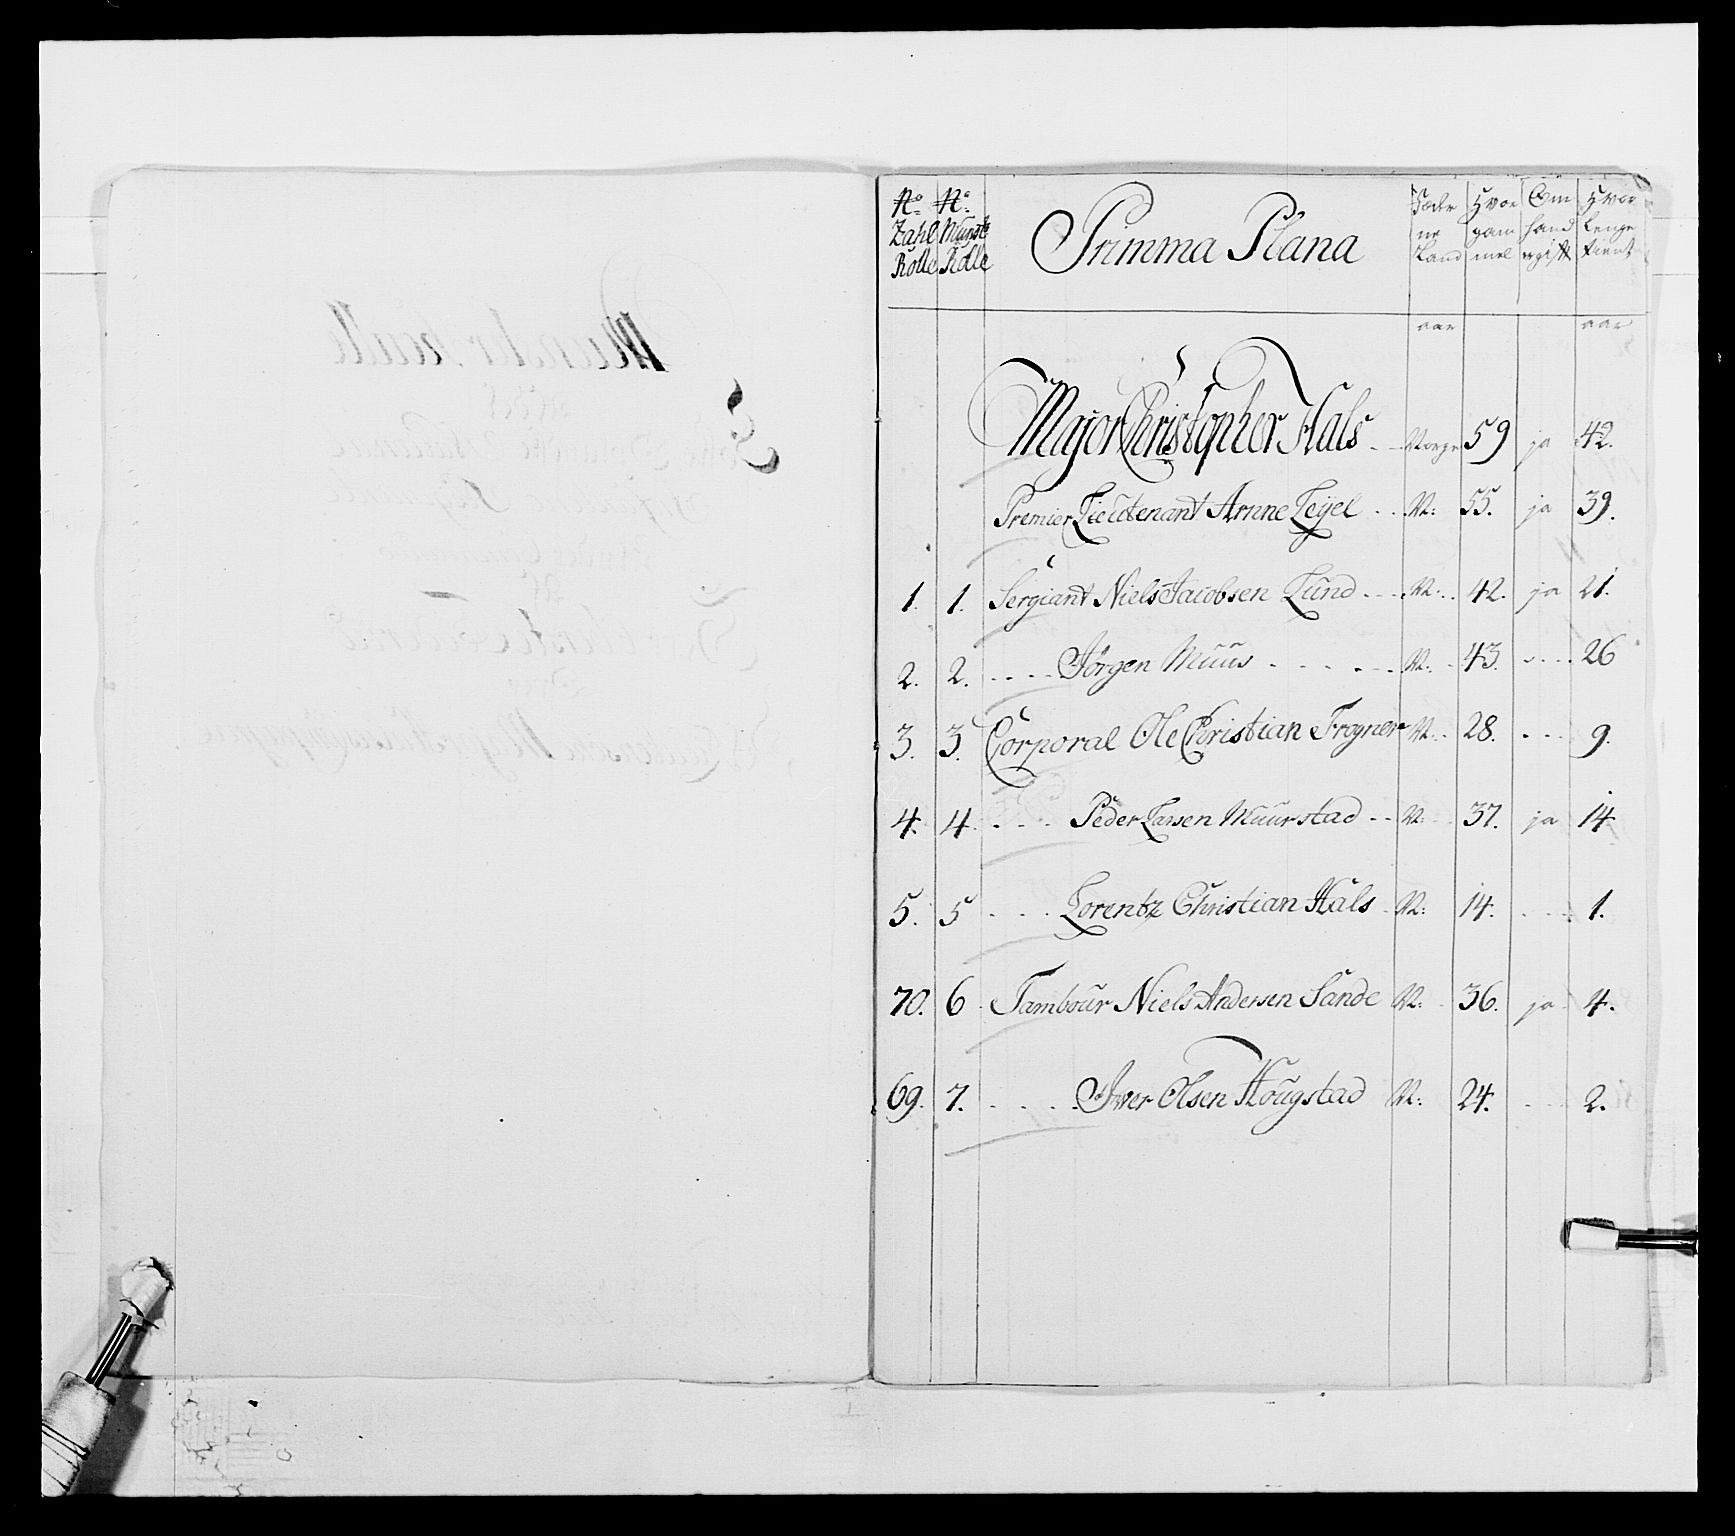 No No Primma Plana Fæde Hvor Om Hvor
Zahl Munst ne gam hand Lenge
Rolle Rolle Land mel er gift tient
aar aar
Major Christopher Hals Norge 59 ja 42.
Premier Lieutenant Arnne Leyel N: 55. ja 39.
1. 1. Sergiant Niels Jacobsen Lund N: 42. ja 21.
2. 2. Jörgen Muus N: 43. 26
3. 3. Corporal Ole Christian Frogner N: 28. 9.
4. 4. Peder Larsen Muurstad N: 37. ja 14
5. 5 Lorentz Christian Hals N: 14. 1.
70. 6 Tambour Niels Andersen Sande N: 36. ja 4.
69. 7. Iver Olsen Hougstad N: 24. 2.